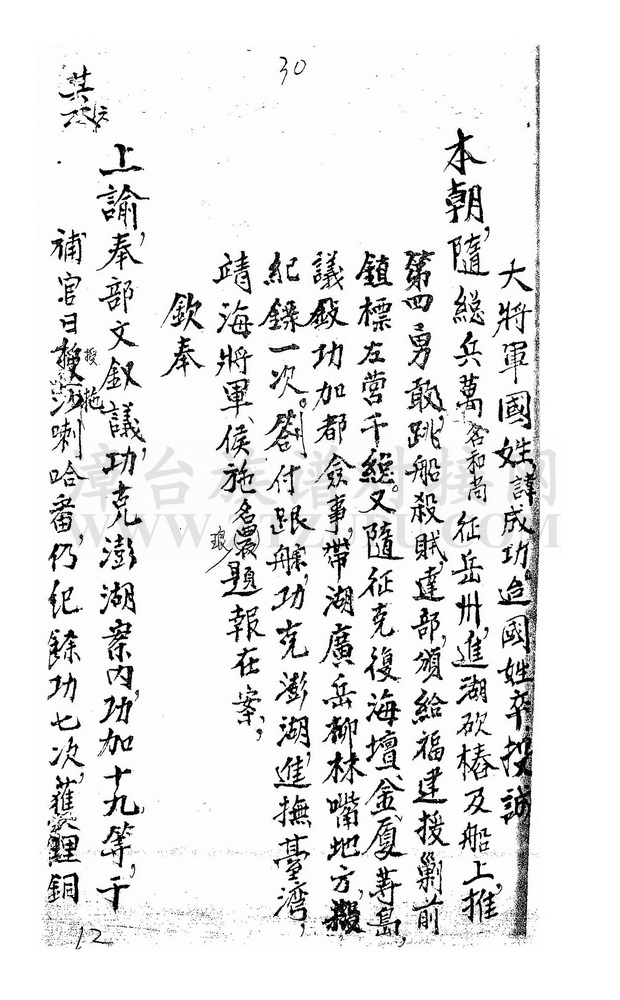 30
大將軍國姓諱成功。迨國姓卒投誠
本朝,隨總兵萬名和尚征岳州,進湖砍樁及船上推
第四勇敢,跳船殺賊,達部,頒給福建援剿前
鎮標左營千總。又隨征克復海壇、金厦等島,
議敘功加都僉事帶湖廣岳柳林嘴地方,
紀錄一次。劄付跟艍,功克澎湖,進撫臺灣,
靖海將軍、侯施名琅題報在案,
欽奉
上諭,奉部文敘議,功克澎湖案內,功加十九等,于
補官日授拖沙喇哈番,仍紀餘功七次,鋰銅
其
12
漳台族谱对接网